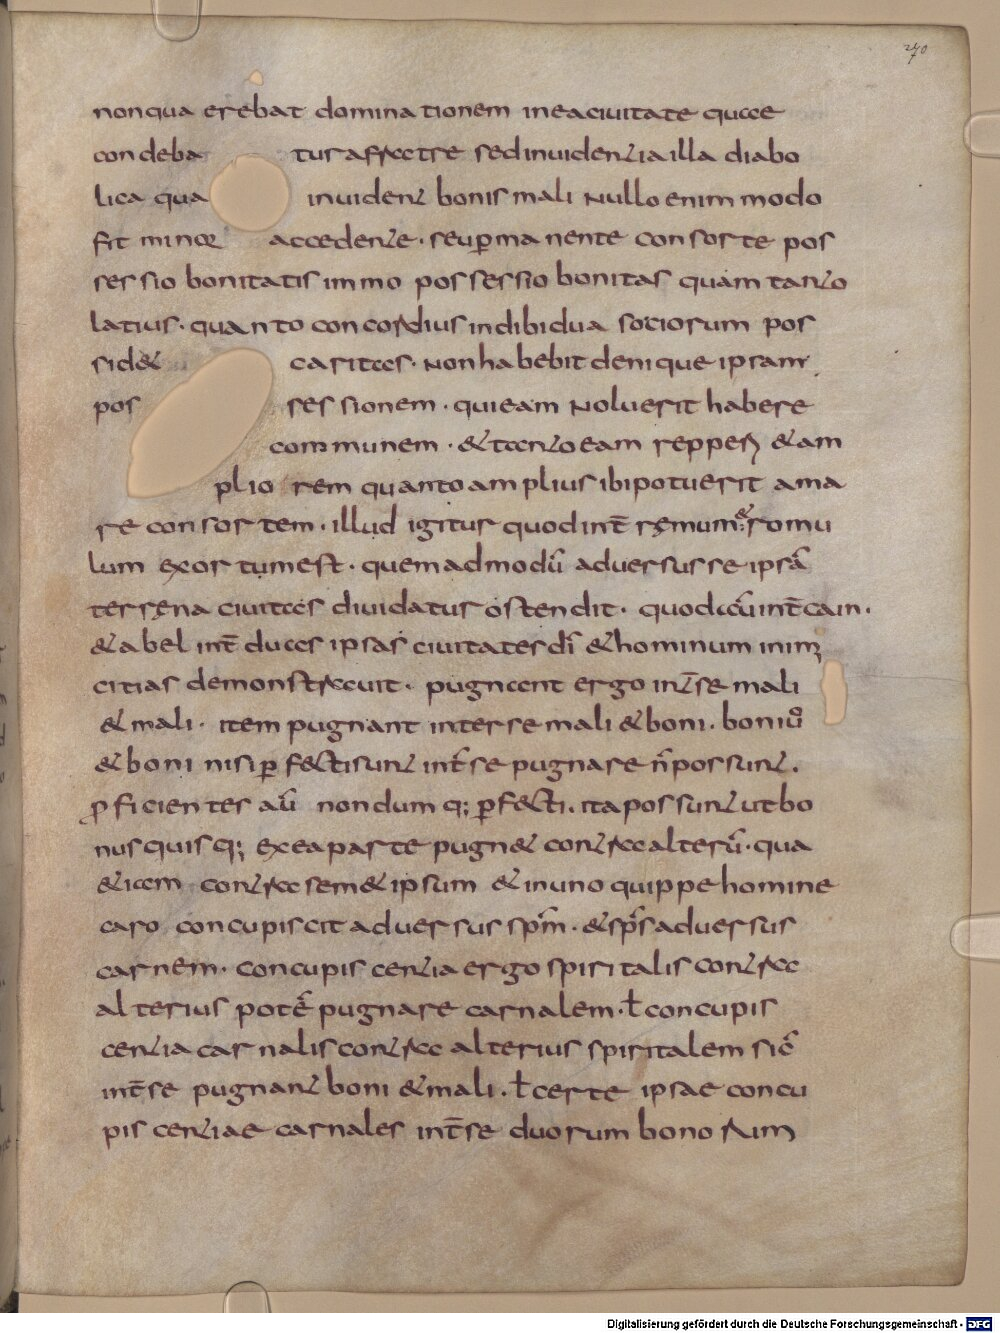 270
nonquaerebat dominationem ineaciuitate quae
condeba turafratre sedinuidentiailla diabo
lica qua inuident bonis mali Nullo enim modo
fit minor accedente · seup̄manente consorte pos
sessio bonitatis immo possessio bonitas quam tanto
latius · quanto concordius indibidua sociorum pos
sid& caritas · Nonhabebit denique ipsam
pos sessionem · quieam Noluerit habere
communem · &tantoeam repper& &am
pliorem quantoamplius ibipotuerit ama
re consortem · illud igitur quodint̄ remum & romu
lum exortumest · quemadmodū aduersusse ipsā
terrena ciuitas diuidatur ostendit · quodaūint̄cain ·
&abel int̄ duas ipsas ciuitatesdī &hominum inim
icitias demonstrauit · pugnant ergo int̄se mali
&mali · item pugnant interse mali &boni · boniu᷒
&boni nisip̄fectisunt int̄se pugnare n̄possunt ·
ꝓficientes aū nondumq; p̄fecti · itapossunt utbo
nusquisq; exeaparte pugn& contraalterū · qua
&iam contrasem&ipsum &inuno quippehomine
caro concupiscit aduersus sp̄m · &sp̄s aduersus
carnem · concupiscentia ergo spiritalis contra
alterius potē pugnare carnalem · ł concupis
centia carnalis contra alterius spiritalem sic̄
int̄se pugnant boni &mali · ł certe ipsae concu
piscentiae carnales int̄se duorum bonorum
Digitalisierung gefördert durch die Deutsche Forschungsgemeinschaft - DFG